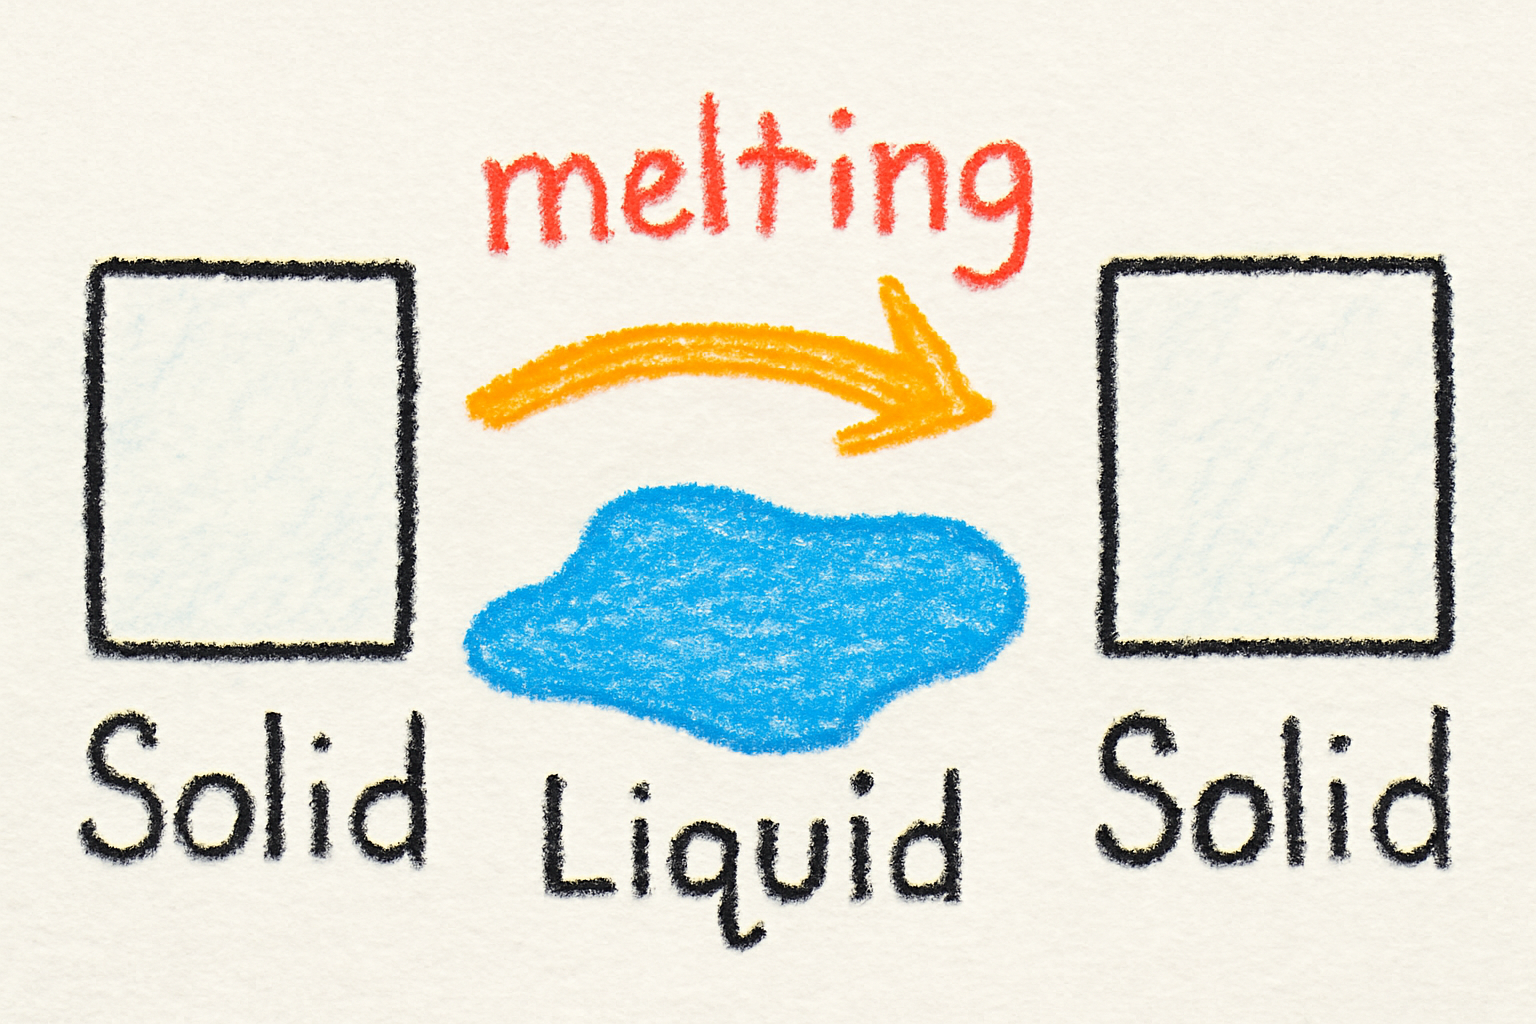 melting
Solid
Liquid
Solid